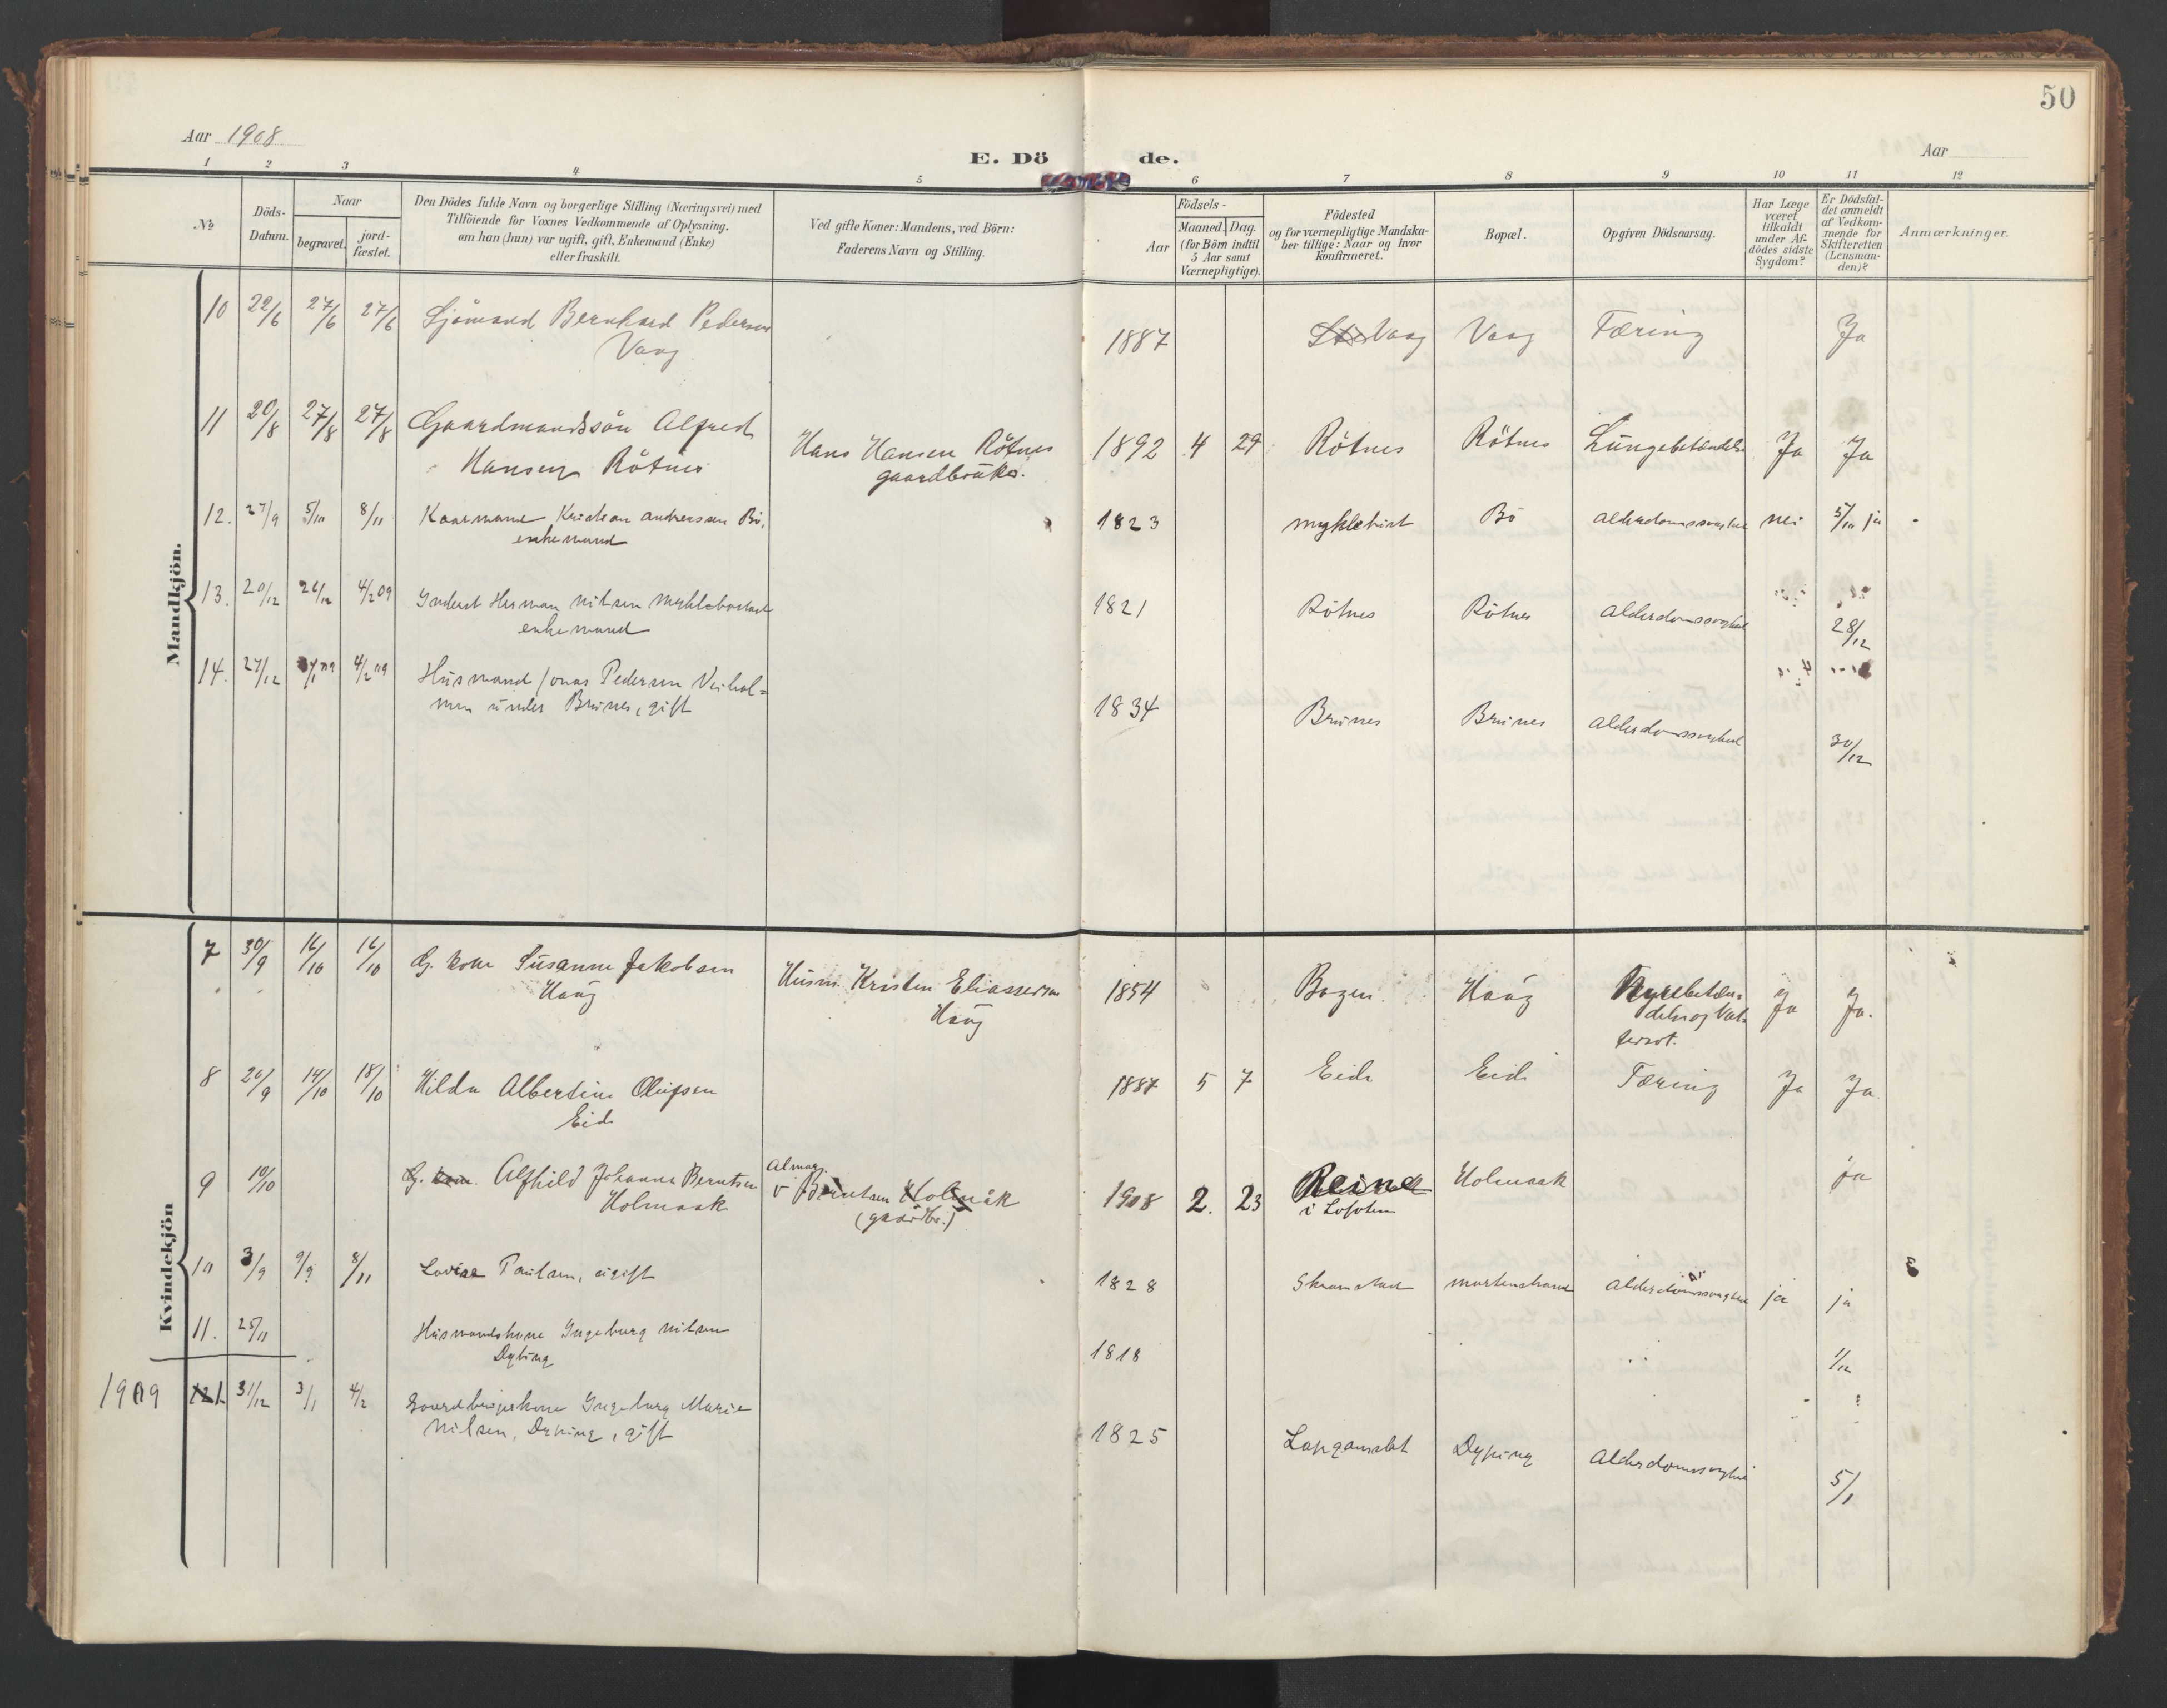 50
Aar 1908
E. Döde.
Aar
1 2 3 4 5 6 7 8 9 10 11 12
No
Döds-Datum.
Naar
begravet.
jord-fæstet.
Den Dödes fulde Navn og borgerlige Stilling (Næringsvei) med
Tilföiende for Voxnes Vedkommende af Oplysning,
om han (hun) var ugift, gift, Enkemand (Enke)
eller fraskilt.
Ved gifte Koner: Mandens, ved Börn:
Faderens Navn og Stilling.
Födsels-
Aar
Maaned. Dag.
(for Börn indtil
5 Aar samt
Værnepligtige).
Födested
og for værnepligtige Mandska-
ber tillige: Naar og hvor
konfirmeret.
Bopæl.
Opgiven Dödsaarsag.
Har Læge
været
tilkaldt
under Af-
dödes sidste
Sygdom?
Er Dödsfal-
det anmeldt
af Vedkom-
mende for
Skifteretten
(Lensman-
den)?
Anmærkninger.
Mandkjön.
10 22/6 27/6 27/6 Sjömand Bernhard Pedersen 1887 Vaag Vaag Tæring Ja
Vaag
11 20/8 27/8 27/8 Gaardmandssön Alfred Hans Hansen Rötnes 1892 4 29 Rötnes Rötnes Lungebetændelse Ja Ja
Hansen Rötnes gaardbruker.
12. 27/9 5/10 8/11 Kaarmand Kristian Andreassen Bö, 1823 Myklebost Bö Alderdomssvaghed nei 5/10 ja
enkemand
13. 20/12 26/12 4/2 09 Inderst Herman Nilsen Myklebostad 1821 Rötnes Rötnes Alderdomssvaghed 28/12
enkemand
14. 27/12 4/2 09 Husmand Jonas Pedersen Veihol= 1834 Brunes Brunes Alderdomssvaghed 30/12
men under Brunes, gift
Kvindekjön
7 30/9 16/10 16/10 G. kone Susanne Jakobsen Husm. Kristen Eliassen 1854 Bogen. Haug Nyrebetæn= Ja Ja.
Haug Haug delse og Vat=
tersot.
8 26/9 14/10 18/10 Hilda Albertine Olufsen 1887 5 7 Eide Eide Tæring Ja Ja.
Eide
9 10/10 G. kone. Alfhild Johanne Berntsen Almar. 1908 2. 23 Reine Holmaak ja
Holmaak Berntsen Holmåk i Lofoten
(gaardbr.)
10 3/9 9/9 8/11 Lovise Paulsen, ugift 1828 Skramstad Martenstrand Alderdomssvaghed ja ja
11. 25/11 Husmandskone Ingeborg Nilsen 1818 1/12
Dyping
1909 1. 31/12 3/1 4/2 Gaardbrugerkone Ingeborg Marie 1825 Dyping Alderdomssvaghed 5/1
Nilsen, Dyping, gift